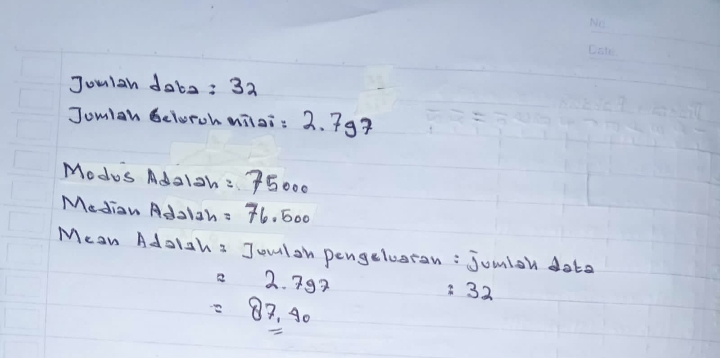 No:
Date:
Jumlah data : 32
Jumlah Seluruh nilai : 2.797
Modus Adalah : 75000
Median Adalah : 76.500
Mean Adalah : Jumlah pengeluaran : jumlah data
= 2.797 : 32
= 87,40